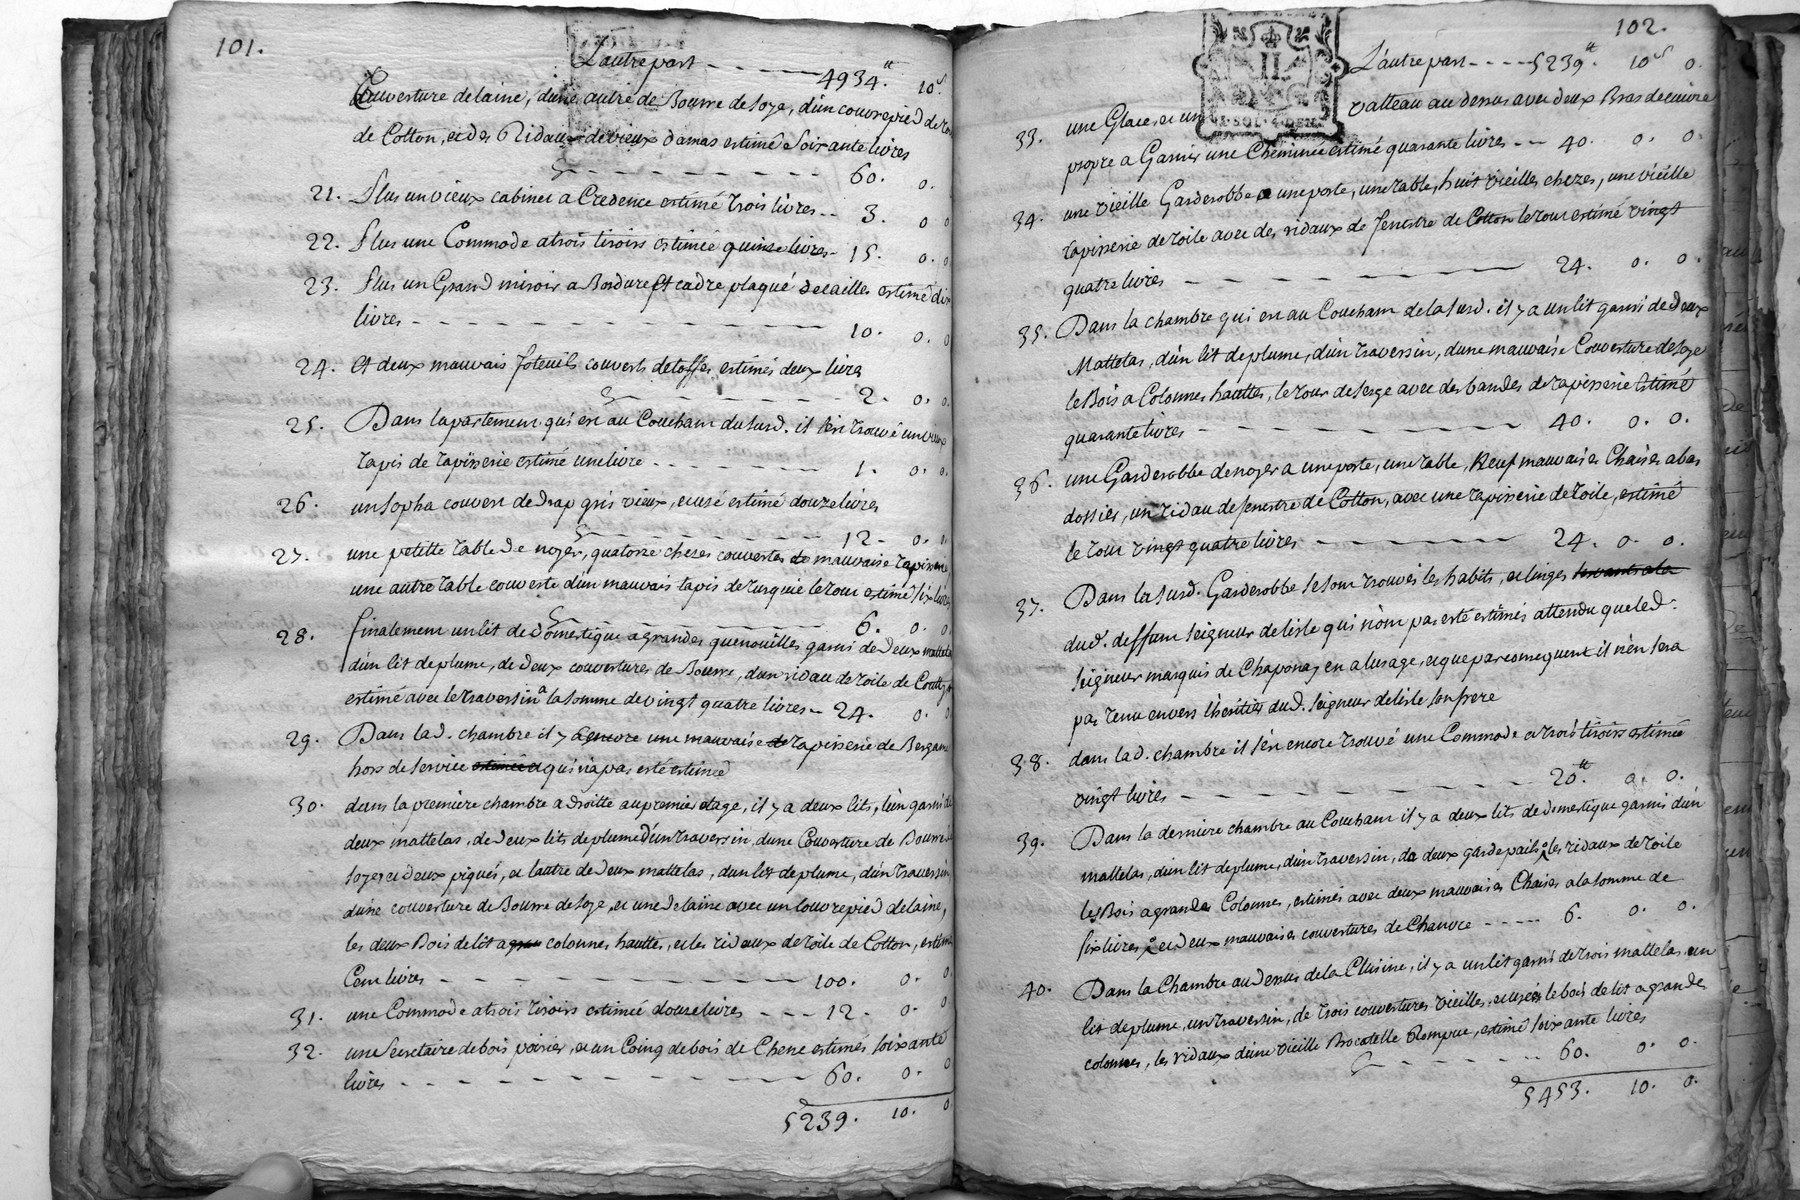 101.
L'autre part - - - - - 4934.tt 10.s
Couverture de laine, d'une autre de Bourre de soye, d'un couvrepied de
de Cotton, et des Ridaux de vieux damas estimé soixante livres
- - - - - - - - 60. 0.
21. Plus un vieux cabinet a Credence estimé trois livres - - 3. 0 0
22. Plus une Commode a trois tiroirs estimée quinse livres - 15. 0. 0
23. Plus un Grand miroir a Bordure et cadre plaqué decailles estimé dix
livres - - - - - - - - - - - - 10. 0. 0
24. et deux mauvais foteuils couverts detoffes estimés deux livres
- - - - - - - - 2. 0. 0.
25. Dans lapartement qui est au Couchant du surd. il s'est trouvé un vieux
tapis de tapisserie estimé une livre - - - - - - 1. 0. 0.
26. un sopha couvert de drap gris vieux, et usé estimé douze livres
- - - - - - - - 12 - 0.
27. une petitte table de noyer, quatorze cheses couvertes de mauvaise tapisserie
une autre table couverte d'un mauvais tapis de turquie le tout estimé six livres
- - - - - - - - 6. 0. 0.
28. finalement un lit de domestique a grandes quenouilles garni de deux mattelas
d'un lit de plume, de deux couvertures de Bourre, d'un ridau de toile de Cotton
estimé avec le traversin a la somme de vingt quatre livres - 24. 0. 0
29. Dans lad. chambre il y a encore une mauvaise de tapisserie de Bergame
hors de service estimée et qui n'a pas esté estimée
30. dans la premiere chambre a droitte au premier etage, il y a deux lits, l'un garni de
deux mattelas, de deux lits de plume d'un traversin, d'une Couverture de Bourre de
soye et deux piqués, et lautre de deux mattelas, d'un lit de plume, d'un traversin
d'une couverture de Bourre de soye, et une de laine avec un couvrepied de laine,
les deux Bois de lit a gran colonnes hauttes, et les ridaux de toile de Cotton, estimé
Cent livres - - - - - - - - - - 100. 0. 0
31. une Commode a trois tiroirs estimée douze livres - - - 12. 0. 0
32. une Secretaire de bois poirier, et un Coing de bois de Chene estimés soixante
livres - - - - - - - - - - 60. 0. 0
5239. 10. 0.
102.
L'autre part - - - - 5239.tt 10s 0.
33. une Glace, et un vatteau au dessus avec deux Bras de cuivre
propre a Garnir une Cheminée estimé quarante livres - - 40. 0. 0.
34. une vieille Garderobbe a une porte, une table, huit vieilles cheses, une vieille
tapisserie de toile avec des ridaux de fenestre de Cotton le tout estimé vingt
quatre livres - - - - - - - - - 24. 0. 0.
35. Dans la chambre qui est au Couchant de la surd. il y a un lit garni de deux
Mattelas, d'un lit de plume, d'un traversin, d'une mauvaise Couverture de soye
le Bois a Colonnes hauttes, le tour de serge avec des bandes de tapisserie estimé
quarante livres - - - - - - - - - 40. 0. 0.
36. une Garderobbe de noyer a une porte, une table, Neuf mauvaises Chaises a bas
dossier, un ridau de fenestre de Cotton, avec une tapisserie de toile, estimé
le tout vingt quatre livres - - - - - - 24. 0. 0.
37. Dans la surd. Garderobbe se sont trouvés les habits, et linges servants a la
du d. deffunt seigneur de lisle qui n'ont pas esté estimés attendu que led.
seigneur marquis de Chaponay en a lusage, et que par consequent il n'en sera
pas tenu envers l'heritier du d. seigneur de lisle son frere
38. dans lad. chambre il s'est encore trouvé une Commode a trois tiroirs estimée
vingt livres - - - - - - - - - 20.tt 0. 0.
39. Dans la derniere chambre au Couchant il y a deux lits de domestique garnis d'un
mattelas, d'un lit de plume, d'un traversin, de deux gardepaille, les ridaux de toile
les Bois a grandes Colonnes, estimés avec deux mauvaises Chaises a la somme de
six livres, et deux mauvaises couvertures de Chanvre - - - - 6. 0. 0.
40. Dans la Chambre au dessus de la Cuisine, il y a un lit garni de trois mattelas, un
lit de plume, un traversin, de trois couvertures vieilles, et usées le bois de lit a grandes
colonnes, les ridaux d'une vieille Brocatelle Rompue, estimé soixante livres
- - - - - - 60. 0. 0.
5453. 10. 0.